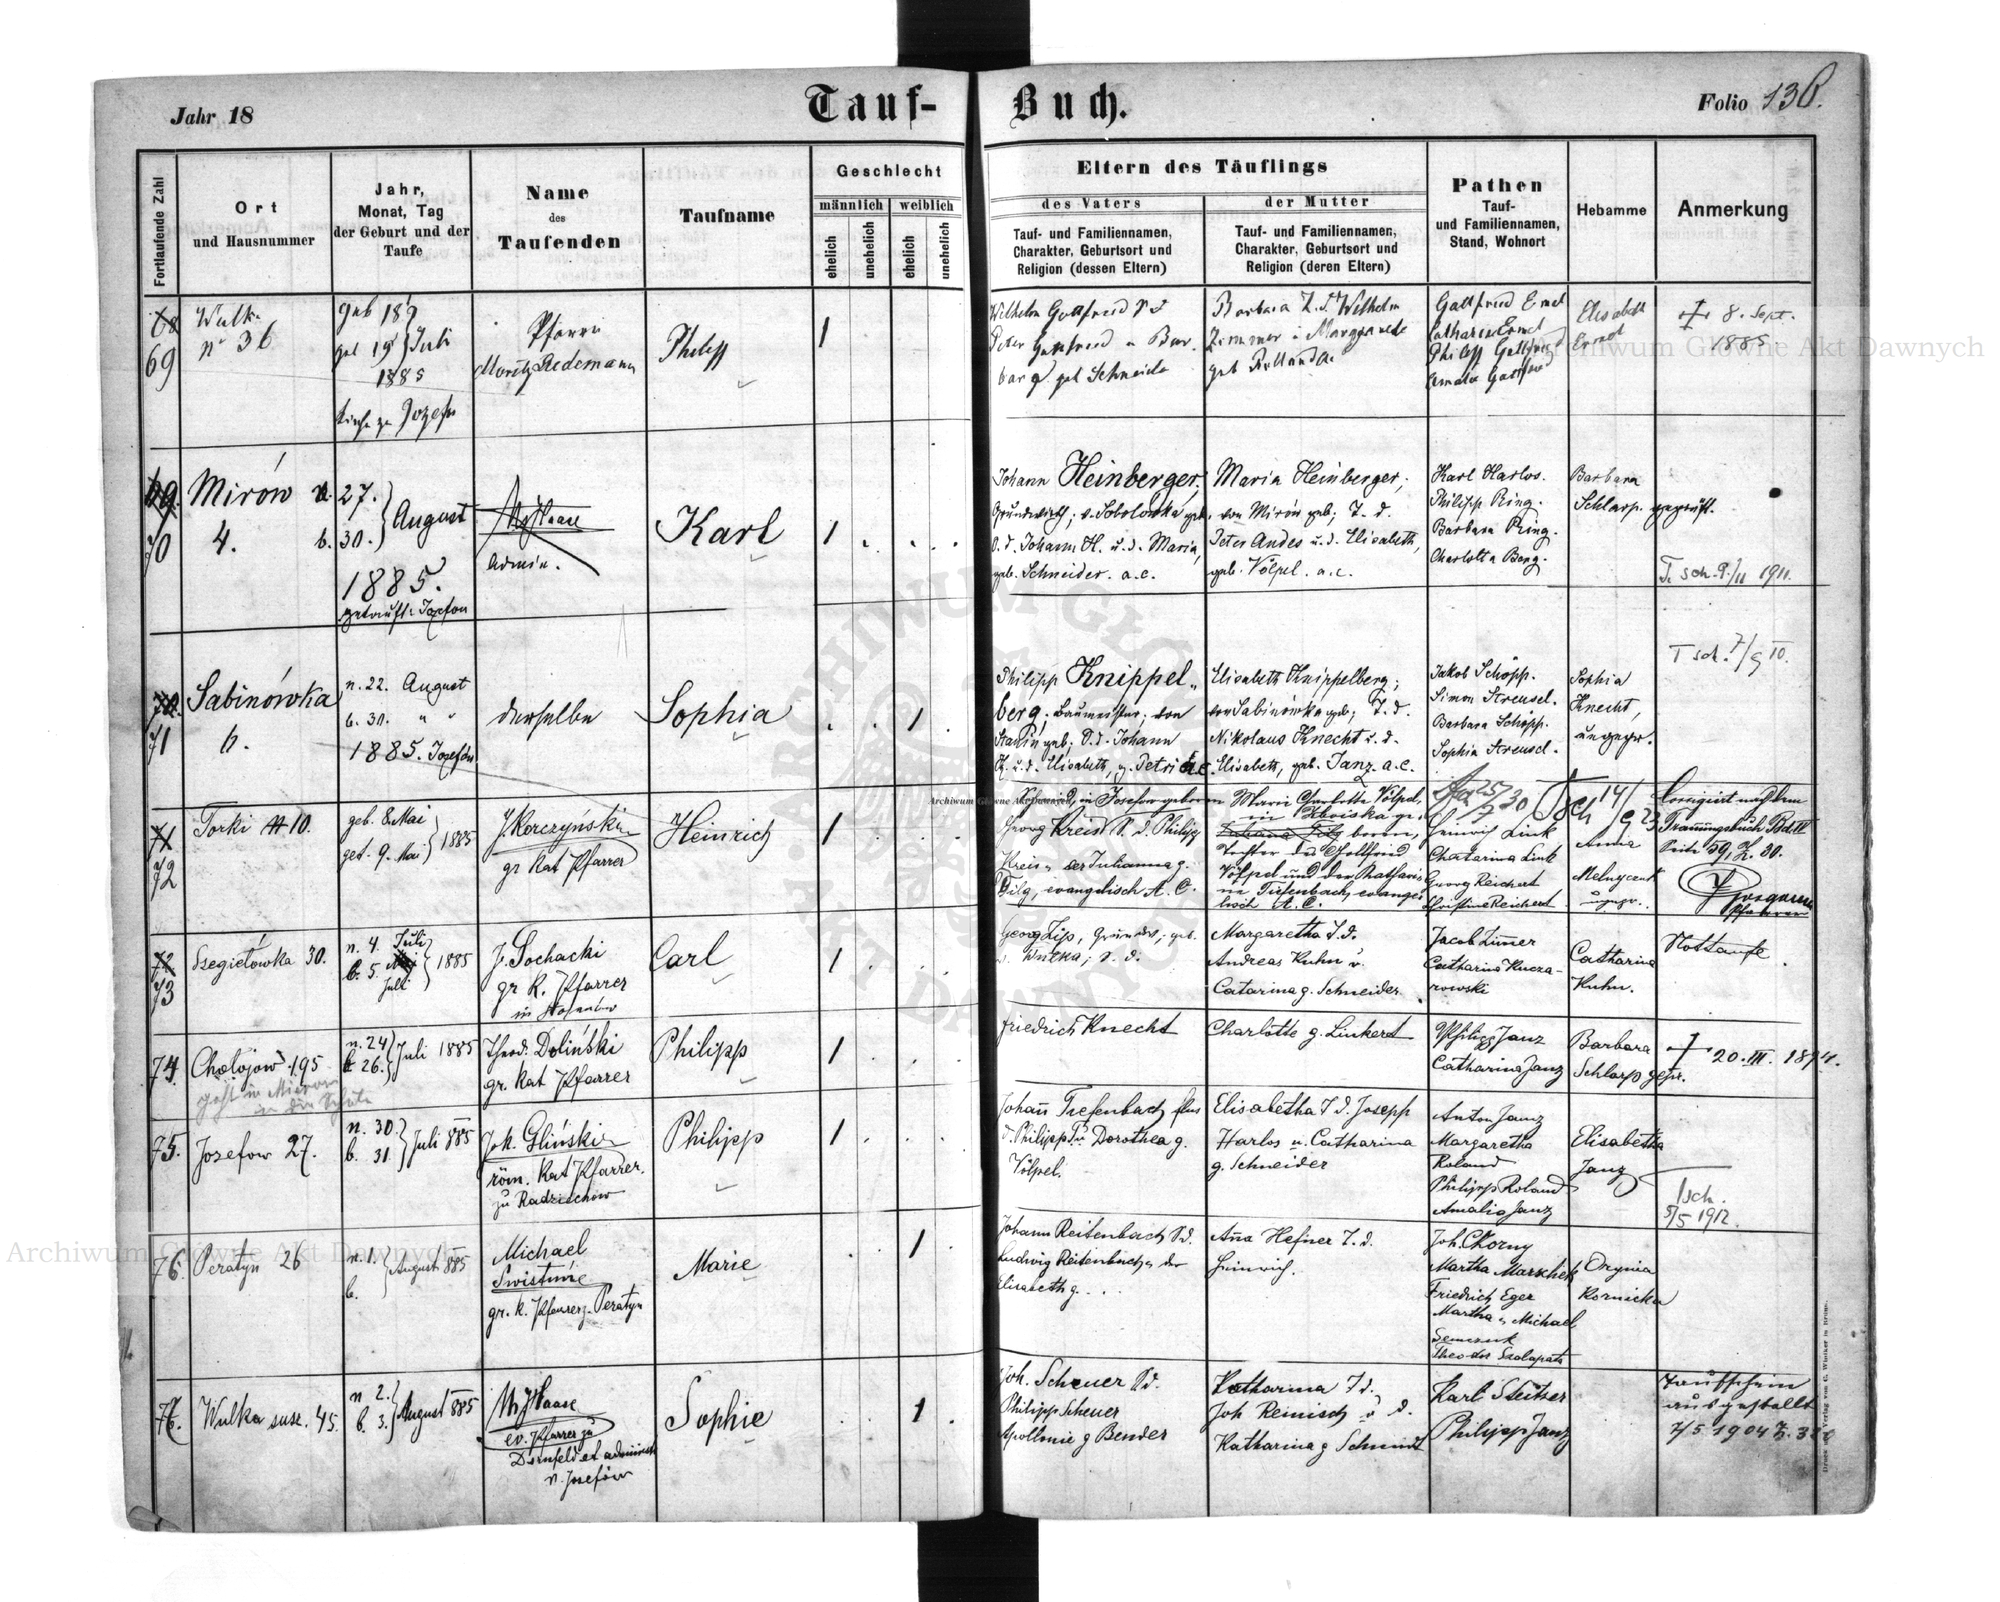 Jahr 18
Tauf-Buch.
Folio 136.
Fortlaufende Zahl
Ort
und Hausnummer
Jahr,
Monat, Tag
der Geburt und der
Taufe
Name
des
Taufenden
Taufname
Geschlecht
männlich
weiblich
ehelich
unehelich
ehelich
unehelich
Eltern des Täuflings
des Vaters
Tauf- und Familiennamen,
Charakter, Geburtsort und
Religion (dessen Eltern)
der Mutter
Tauf- und Familiennamen,
Charakter, Geburtsort und
Religion (deren Eltern)
Pathen
Tauf-
und Familiennamen,
Stand, Wohnort
Hebamme
Anmerkung
68
69
Wulka
n 36
geb 18
get 19 Juli
1885
Pfarrer
Moritz Redemann
Philipp
1
Wilhelm Gottfried
Peter Gottfried u Bar-
bara geb Schneide
Barbara T. d. Wilhelm
Zimmer u Margarete
geb
Gottfried Ermel
Catharin Ermel
Philipp Gottfried
Amalie Gottfried
Elisabeth
Ermel
8. Sept.
1885
69.
70
Mirów
4.
27.
b. 30. August
1885.
getauft: Josefow
MHaase
Admin.
Karl
1
Johann Heinberger,
Grundwirth; v. Sobolówka geb.
S. d. Johann H. u. d. Maria,
geb. Schneider. a.c.
Maria Heinberger;
von Mirów geb; T. d.
Peter Andes u. d. Elisabeth,
geb. Völpel. a.c.
Karl Harlos.
Philipp Ring.
Barbara Ring.
Charlotte Berg.
Barbara
Schlarp. geprüft.
T. sch. 9./11 1911.
70.
71
Sabinówka
6.
n. 22. August
b. 30. " "
1885. Josefów
derselbe
Sophia
1
Philipp Knippel-
berg; Baumeister; von
Stanin geb: S. d. Johann
K. u. d. Elisabeth, g. Petri a.c.
Elisabeth Knippelberg;
von Sabinówka geb; T. d.
Nikolaus Knecht u. d.
Elisabeth, geb. Janz. a.c.
Jakob Schöpp.
Simon Streusel.
Barbara Schöpp.
Sophia Streusel.
Sophia
Knecht,
ungepr.
T sch. 7/9 10.
71
72
Torki N 10.
geb. 8. Mai
get. 9. Mai 1885
J. Korczyński
gr Kat Pfarrer
Heinrich
1
Schmied, in Josefow geboren
Georg Kreis S. d. Philipp
Kreis u der Juliana g.
Filg, evangelisch A. C.
Marie Charlotte Völpel,
in Zboiska ge-
boren,
Tochter des Gottfried
Völpel und der Kathari-
ne Tiefenbach, evange-
lisch A. C.
25/7 30 Tsch 14/9 23
Heinrich Link
Chatarina Link
Georg Reichert
Christine Reichert
Anna
Melnyczuk
ungepr.
Corrigiert nach dem
Trauungsbuch Bd III
Seite 59, Z. 30.
Pfarrer
72
73
Szegietówka 30.
n. 4. Juli
b. 5. Juli 1885
J. Sochacki
gr K. Pfarrer
in
Carl
1
Georg Zip, Grundw, geb.
v. Wulka, S. d.
Margaretha T. d.
Andreas Kuhn u.
Catarina g. Schneider
Jacob Zimer
Catharina Kucza-
rowski
Catharina
Kuhn.
Nottaufe
74.
Cholojów 195
geht in Mierow
in die Schule
n. 24
b 26. Juli 1885
Theod. Doliński
gr. Kat Pfarrer
Philipp
1
Friedrich Knecht
Charlotte g. Linkert
Philipp Janz
Catharina Janz
Barbara
Schlarp gepr.
20. III. 1894.
75.
Josefow 27.
n. 30.
b. 31. Juli 885
Joh. Gliński
röm. Kat Pfarrer.
zu Radziechów
Philipp
1
Johañ Tiefenbach filus
d. Philipp T. u Dorothea g.
Völpel.
Elisabetha T d. Josepp
Harlos u. Catharina
g. Schneider
Anton Janz
Margaretha
Roland
Philipp Roland
Amalia Janz
Elisabetha
Janz
Tsch.
5/5 1912.
76.
Peratyn 26
n. 1.
b. August 885
Michael
gr. k. Pfarrer z. Peratyn
Marie
1
Johann Reitenbach Sd.
Ludwig Reitenbach u der
Elisabeth g. . . .
Aña Hefner T. d.
Heinrich.
Joh. Chorny
Martha Marschek
Friedrich Eger
Martha u Michael
Semczuk
Theodor Szalapata
Orynia
Kornicka
76.
Wulka susz. 45.
n 2.
b. 3. August 885
MHaase
ev. Pfarrer zu
Dornfeld et administ
v. Josefów
Sophie
1
Joh. Scheuer Sd.
Philipp Scheuer
Apollonie g Bender
Katharina T d.
Joh Reinisch u d.
Katharina g Schmidt
Karl Steitzer
Philipp Janz
Taufschein
ausgestellt
7/5 1904 Z. 37
Archiwum Główne Akt Dawnych
Archiwum Główne Akt Dawnych
Archiwum Główne Akt Dawnych
ARCHIWUM GŁÓWNE AKT DAWNYCH